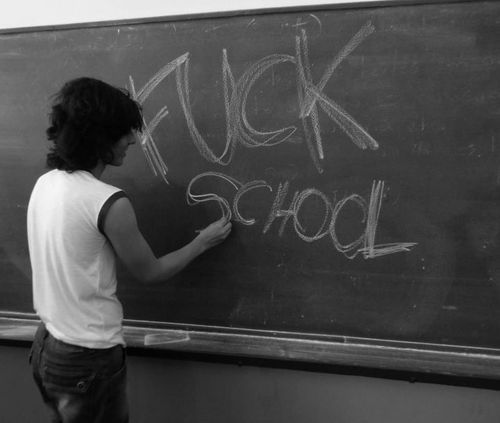 FUCK
SCHOOL